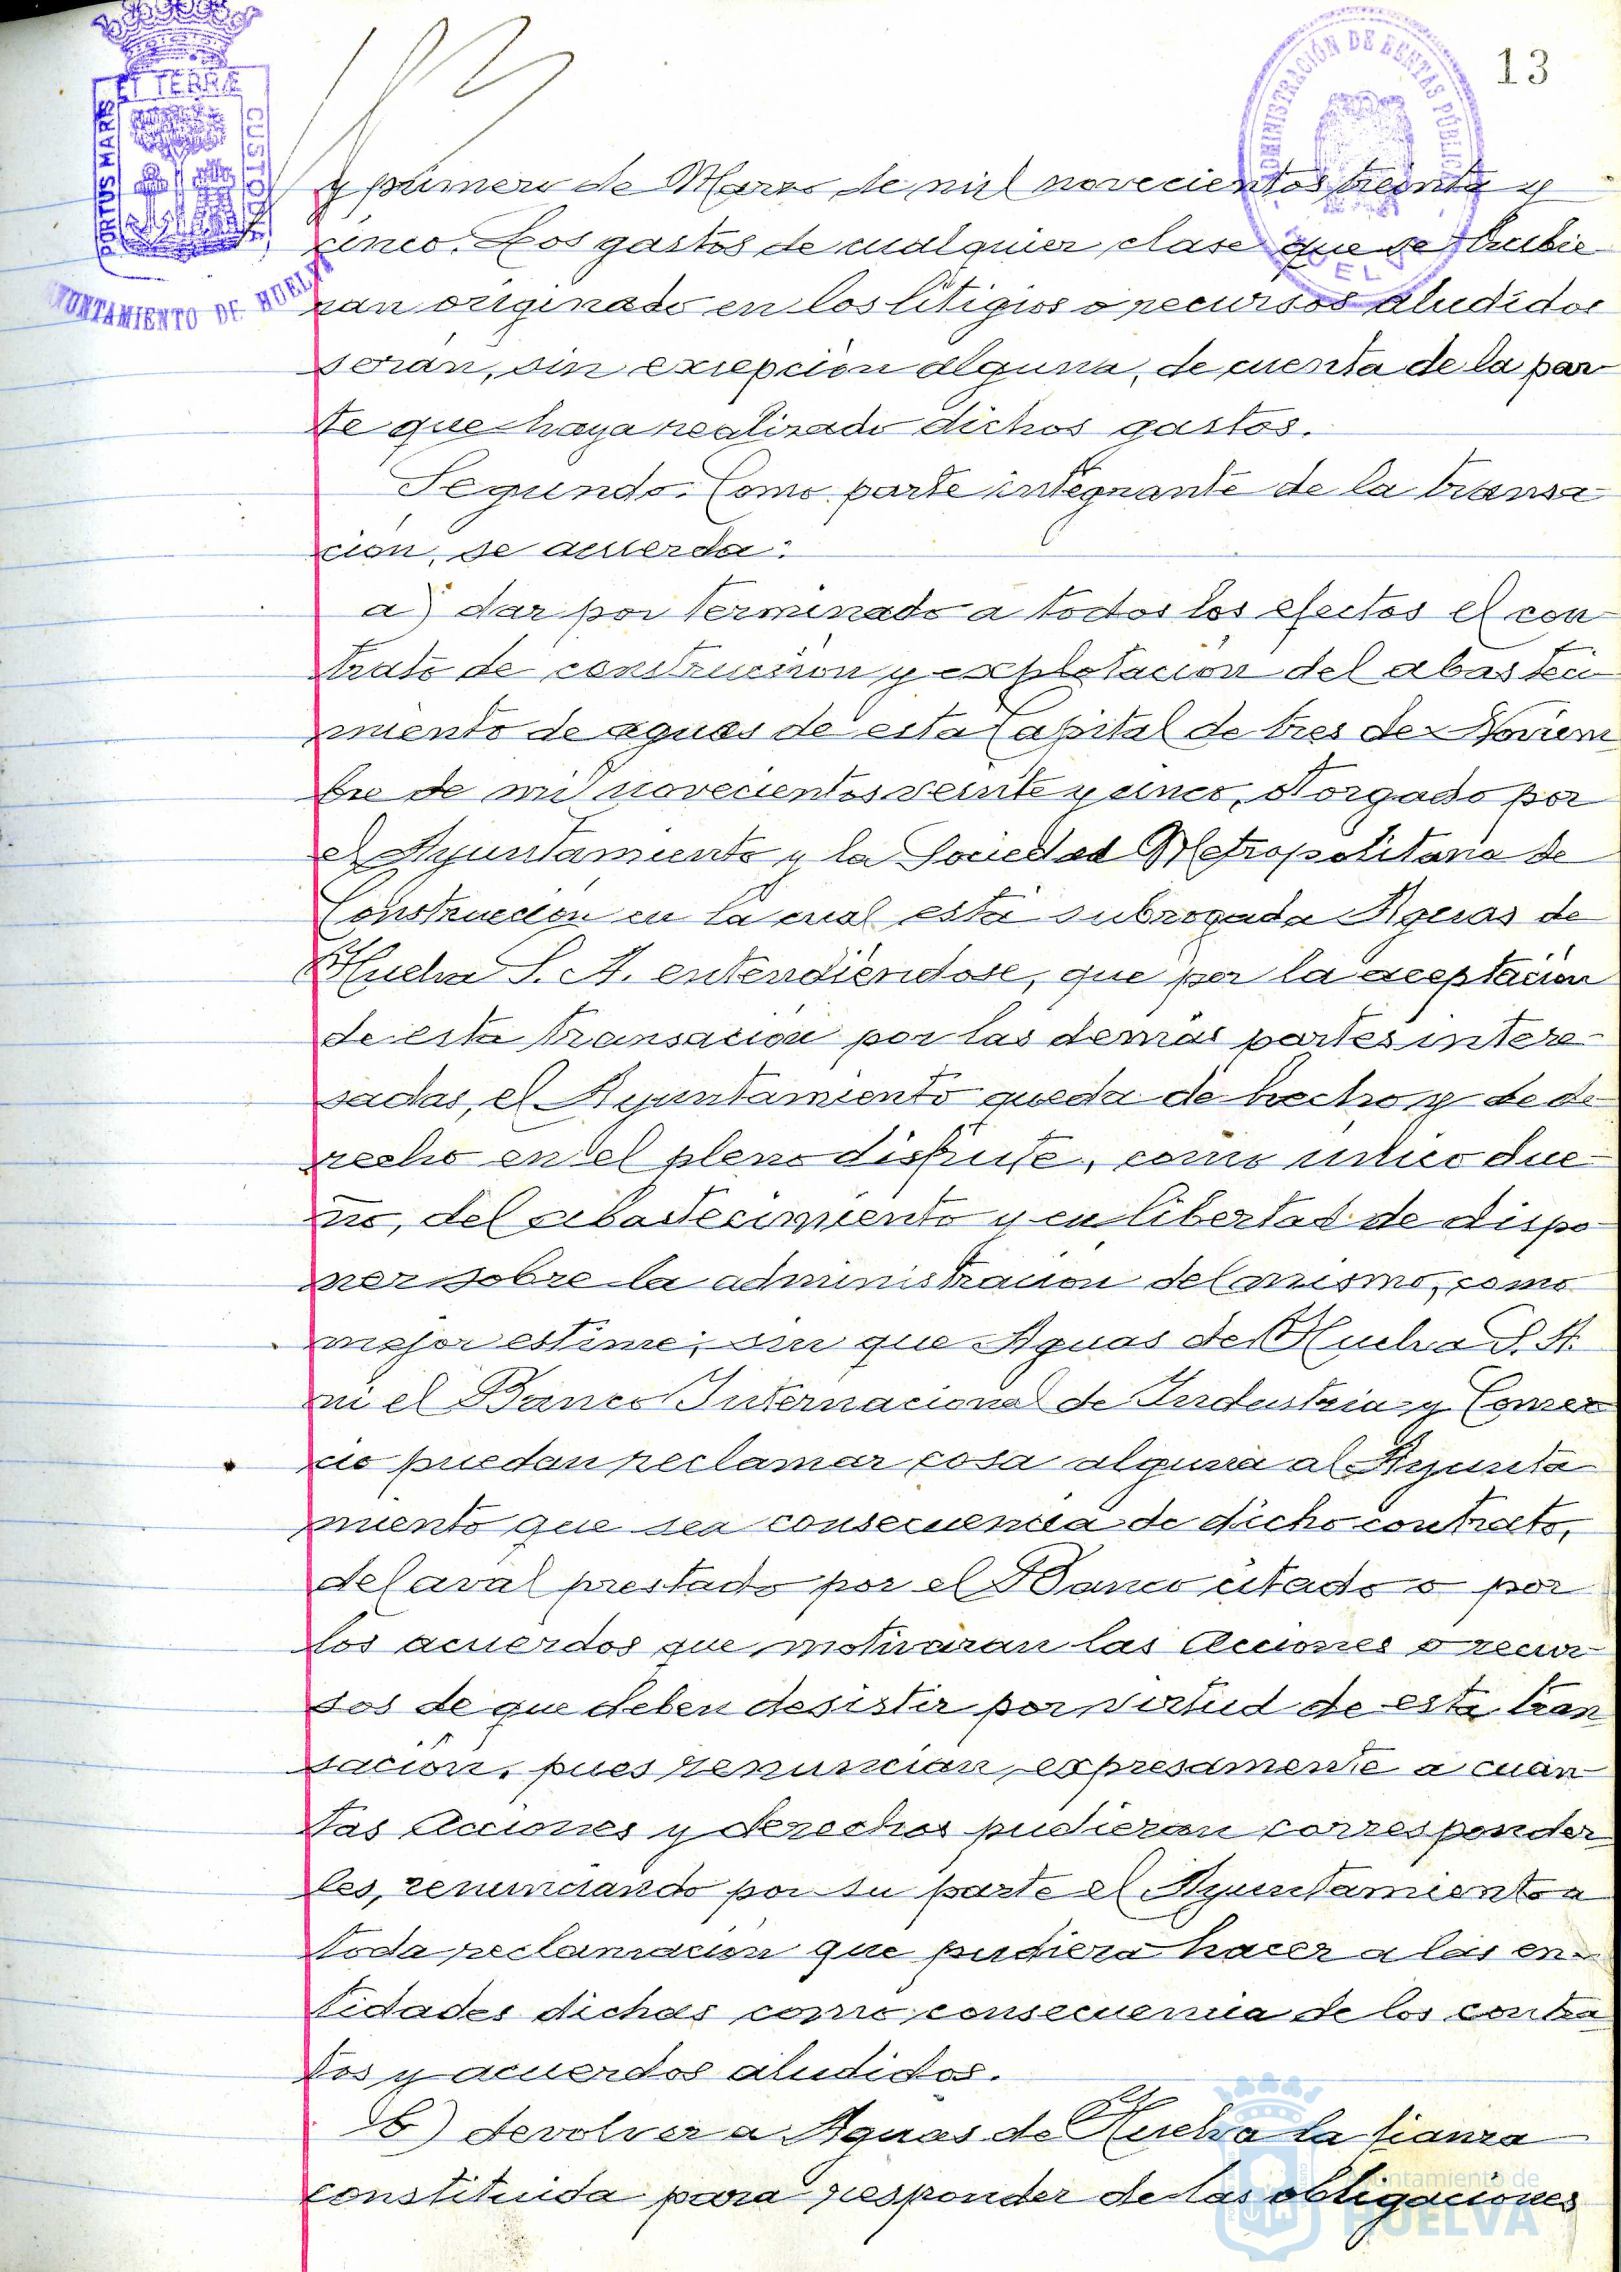 13
ET TERRÆ
PORTUS MARIS
CUSTODI
AYUNTAMIENTO DE HUELVA
ADMINISTRACIÓN DE RENTAS PÚBLICAS
HUELVA
y primero de Marzo de mil novecientos treinta y
cinco. Los gastos de cualquier clase que se hubie
ran originado en los litigios o recursos aludidos
serán, sin excepción alguna, de cuenta de la par
te que haya realizado dichos gastos.
Segundo. Como parte integrante de la transa
cion, se acuerda:
a) dar por terminado a todos los efectos el con
trato de construccion y explotacion del abasteci
miento de aguas de esta Capital de tres de Noviem
bre de mil novecientos veinte y cinco, otorgado por
el Ayuntamiento y la Sociedad Metropolitana de
Construccion en la cual está subrogada Aguas de
Huelva S. A. entendiéndose, que por la aceptacion
de esta transacion por las demás partes intere-
sadas, el Ayuntamiento queda de hecho y de de-
recho en el pleno disfrute, como unico due-
ño, del abastecimiento y en libertad de dispo
ner sobre la administracion del mismo, como
mejor estime; sin que Aguas de Huelva S. A.
ni el Banco Internacional de Industria y Comer
cio puedan reclamar cosa alguna al Ayunta
miento que sea consecuencia de dicho contrato,
del aval prestado por el Banco citado o por
los acuerdos que motivaran las acciones o recur
sos de que deben desistir por virtud de esta tran
sacion, pues renuncian expresamente a cuan
tas acciones y derechos pudieran corresponder
les, renunciando por su parte el Ayuntamiento a
toda reclamacion que pudiera hacer a las en-
tidades dichas como consecuencia de los contra
tos y acuerdos aludidos.
b) devolver a Aguas de Huelva la fianza
constituida para responder de las obligaciones
Ayuntamiento de
HUELVA